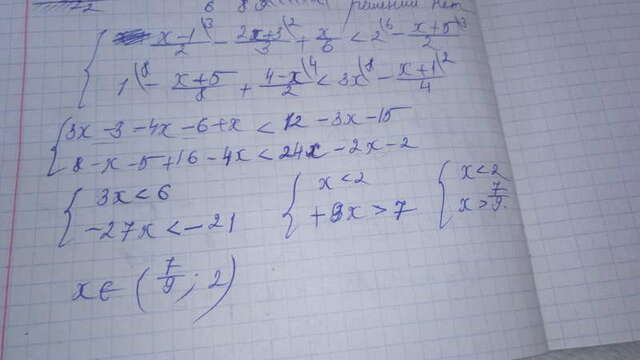 6 8 9 решений нет
{ x-1/2 \3 - 2x+3/3 \2 + x/6 < 2 \6 - x+5/2 \3
1 \8 - x+5/8 + 4-x/2 \4 < 3x \8 - x+1/4 \2
{ 3x-3-4x-6+x < 12-3x-15
8-x-5+16-4x < 24x-2x-2
{ 3x<6 { x<2 { x<2
-27x<-21 +9x>7 x>7/9.
x∈(7/9; 2)